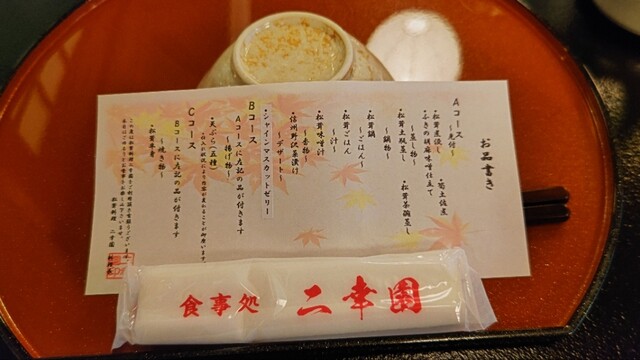 お品書き
Aコース
~先付~
・松茸煮浸し
・菊上佐煮
・ふきの胡麻味噌仕立て
~蒸し物~
・松茸土瓶蒸し
・松茸茶碗蒸し
~鍋物~
・松茸鍋
~ごはん~
・松茸ごはん
~汁~
・松茸味噌汁
~香物~
・信州野沢菜漬け
デザート
・シャインマスカットゼリー
Bコース
Aコースに左記の品が付きます
~揚げ物~
・天ぷら(五種)
Cコース
Bコースに左記の品が付きます
~焼き物~
・松茸串身
松茸料理 二幸園
食事処 二幸園